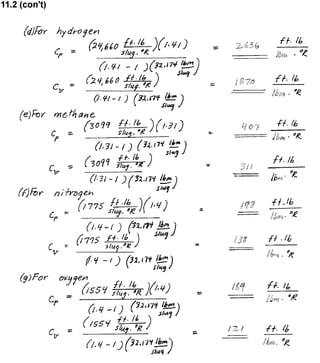 11.2 (con't)
(d) For hydrogen
c_p = (24,660 ft.lb/slug.°R)(1.41) / (1.41 - 1)(32.174 lbm/slug) = 2636 ft.lb/lbm.°R
c_v = (24,660 ft.lb/slug.°R) / (1.41 - 1)(32.174 lbm/slug) = 1870 ft.lb/lbm.°R
(e) For methane
c_p = (3099 ft.lb/slug.°R)(1.31) / (1.31 - 1)(32.174 lbm/slug) = 407 ft.lb/lbm.°R
c_v = (3099 ft.lb/slug.°R) / (1.31 - 1)(32.174 lbm/slug) = 311 ft.lb/lbm.°R
(f) For nitrogen
c_p = (1775 ft.lb/slug.°R)(1.4) / (1.4 - 1)(32.174 lbm/slug) = 193 ft.lb/lbm.°R
c_v = (1775 ft.lb/slug.°R) / (1.4 - 1)(32.174 lbm/slug) = 138 ft.lb/lbm.°R
(g) For oxygen
c_p = (1554 ft.lb/slug.°R)(1.4) / (1.4 - 1)(32.174 lbm/slug) = 169 ft.lb/lbm.°R
c_v = (1554 ft.lb/slug.°R) / (1.4 - 1)(32.174 lbm/slug) = 121 ft.lb/lbm.°R